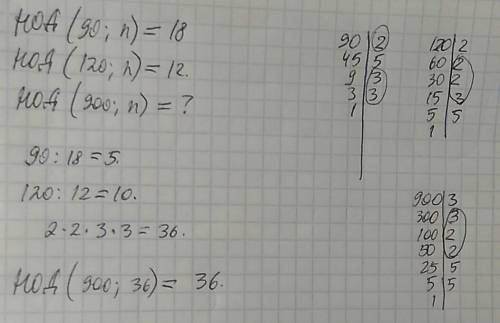 НОД (90; n) = 18
НОД (120; n) = 12.
НОД (900; n) = ?
90 : 18 = 5.
120 : 12 = 10.
2 · 2 · 3 · 3 = 36.
НОД (900; 36) = 36.
90 | 2
45 | 5
9 | 3
3 | 3
1 |
120 | 2
60 | 2
30 | 2
15 | 3
5 | 5
1 |
900 | 3
300 | 3
100 | 2
50 | 2
25 | 5
5 | 5
1 |